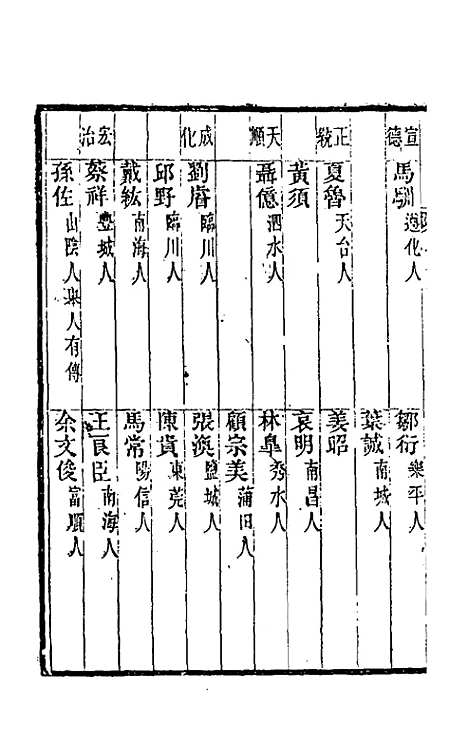 宣德
馬馴 遵化人
鄒衍 樂平人
葉誠 南城人
正統
夏魯 天台人
姜昭
黃須
袁明 南昌人
天順
聶億 泗水人
林皐 秀水人
顧宗美 莆田人
成化
劉㾗 臨川人
張澳 鹽城人
邱野 臨川人
陳貴 東莞人
戴紘 南海人
馬常 陽信人
宏治
蔡祥 豐城人
王良臣 南海人
孫佐 山陰人舉人有傳
余文俊 富順人